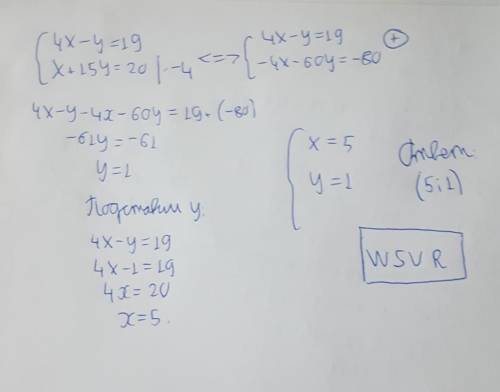 4x-y=19
x+15y=20 |·-4 <=> 4x-y=19
-4x-60y=-80 +
4x-y-4x-60y=19·(-80)
-61y=-61
y=1
Подставим y.
4x-y=19
4x-1=19
4x=20
x=5.
x=5
y=1
Ответ:
(5;1)
WSVR